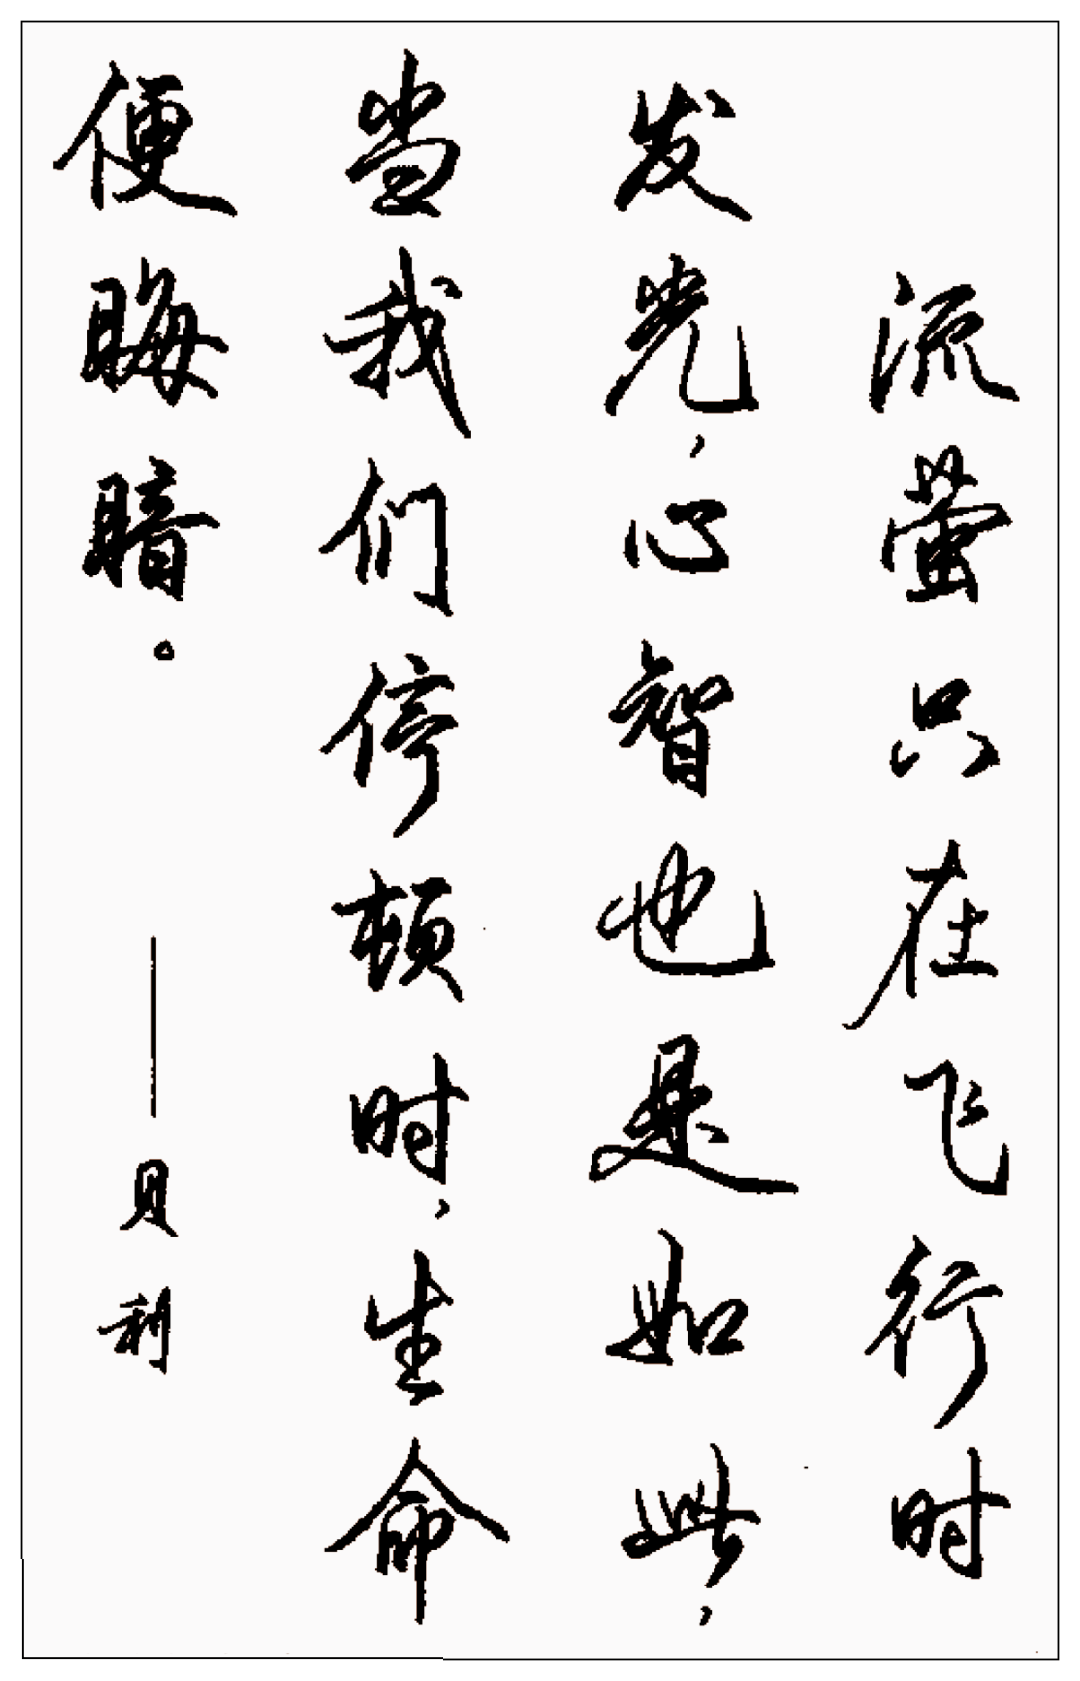 流萤只在飞行时
发光，心智也是如此，
当我们停顿时，生命
便晦暗。
——贝利